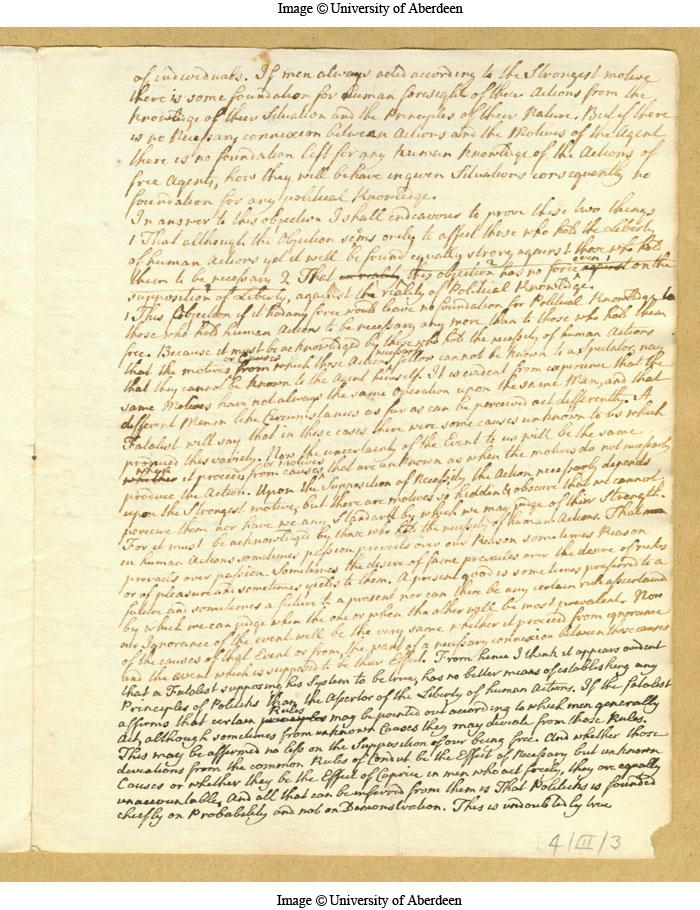 Image © University of Aberdeen
of individuals. If men always acted according to the Strongest motive
there is some foundation for human foresight of their Actions from the
knowledge of their Situation and the Principles of their Nature. But if there
is no Necessary connexion between Actions and the Motives of the Agent
there is no foundation left for any human knowledge of the Actions of
free Agents, how they will behave in given Situations consequently no
foundation for any political knowledge.
In answer to this objection I shall endeavour to prove these two things
1 That although the Objection seems only to affect those who hold the Liberty
of human Actions yet it will be found equally strong against those who hold
them to be necessary 2 That in reality this objection has no force even against on the
supposition of Liberty, against the reality of Political Knowledge.
1 This Objection if it had any force would leave no foundation for Political Knowledge to
those who hold human Actions to be necessary any more than to those who hold them
free. Because it must be acknowledged by those who hold the necessity of human Actions
that the motives or Causes from which those Actions necessarily follow cannot be known to a Spectator, nay
that they cannot be known to the Agent himself. It is evident from experience that the
same Motives have not always the same operation upon the same Man, and that
different Men in like Circumstances as far as can be perceived act differently. A
Fatalist will say that in these cases there were some causes unknown to us which
produced this variety. Now the uncertainty of the Event to us will be the same
whether where it proceeds from causes or motives that are unknown as when the motives do not necessarly
produce the Action. Upon the Supposition of Necessity the Action necessarly depends
upon the Strongest motive, but there are motives so hidden & obscure that we cannot
perceive them nor have we any Standard by which we may judge of their Strength.
For it must be acknowledged by those who hold the necessity of human Actions. That
in human Actions sometimes passion prevails over our Reason sometimes Reason
prevails over passion. Sometimes the desire of fame prevails over the desire of riches
or of pleasure and sometimes yields to them. A present good is some times preferred to a
future and sometimes a future to a present nor can there be any certain rule ascertaind
by which we can judge when the one or when the other will be most prevalent. Now
our Ignorance of the event will be the very same whether it proceed from ignorance
of the causes of that Event or from the want of a necessary connexion between those causes
and the event which is supposed to be their Effect. From hence I think it appears evident
that a Fatalist supposing his System to be true, has no better means of establishing any
Principles of Politicks than the Assertor of the Liberty of human Actions. If the fatalist
affirms that certain principles Rules may be pointed out according to which men generally
Act, although sometimes from unknown Causes they may deviate from those Rules.
This may be affirmed no less on the Supposition of our being free. And whether those
deviations from the common Rules of Conduct be the Effect of Necessary but unknown
Causes or whether they be the Effect of Caprice in men who act freely, they are equally
unaccountable, And all that can be inferred from them is That Politicks is founded
cheifly on Probability and not on Demonstration. This is undoubtedly true
4/III/3
Image © University of Aberdeen